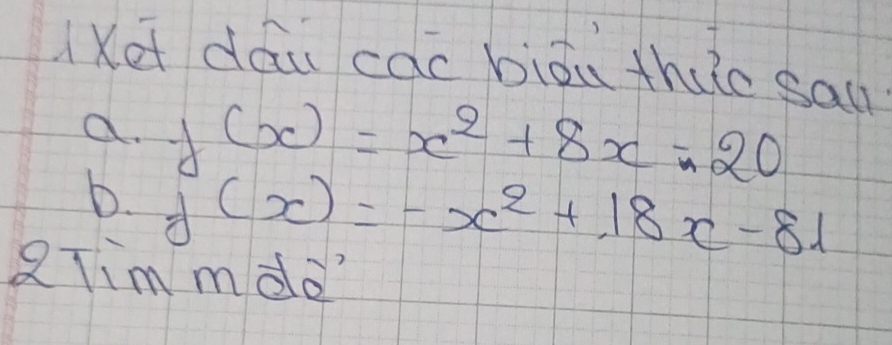 1 Xét dấu các biểu thức sau.
a. f(x) = x² + 8x - 20
b. f(x) = -x² + 18x - 81
2 Tìm m để